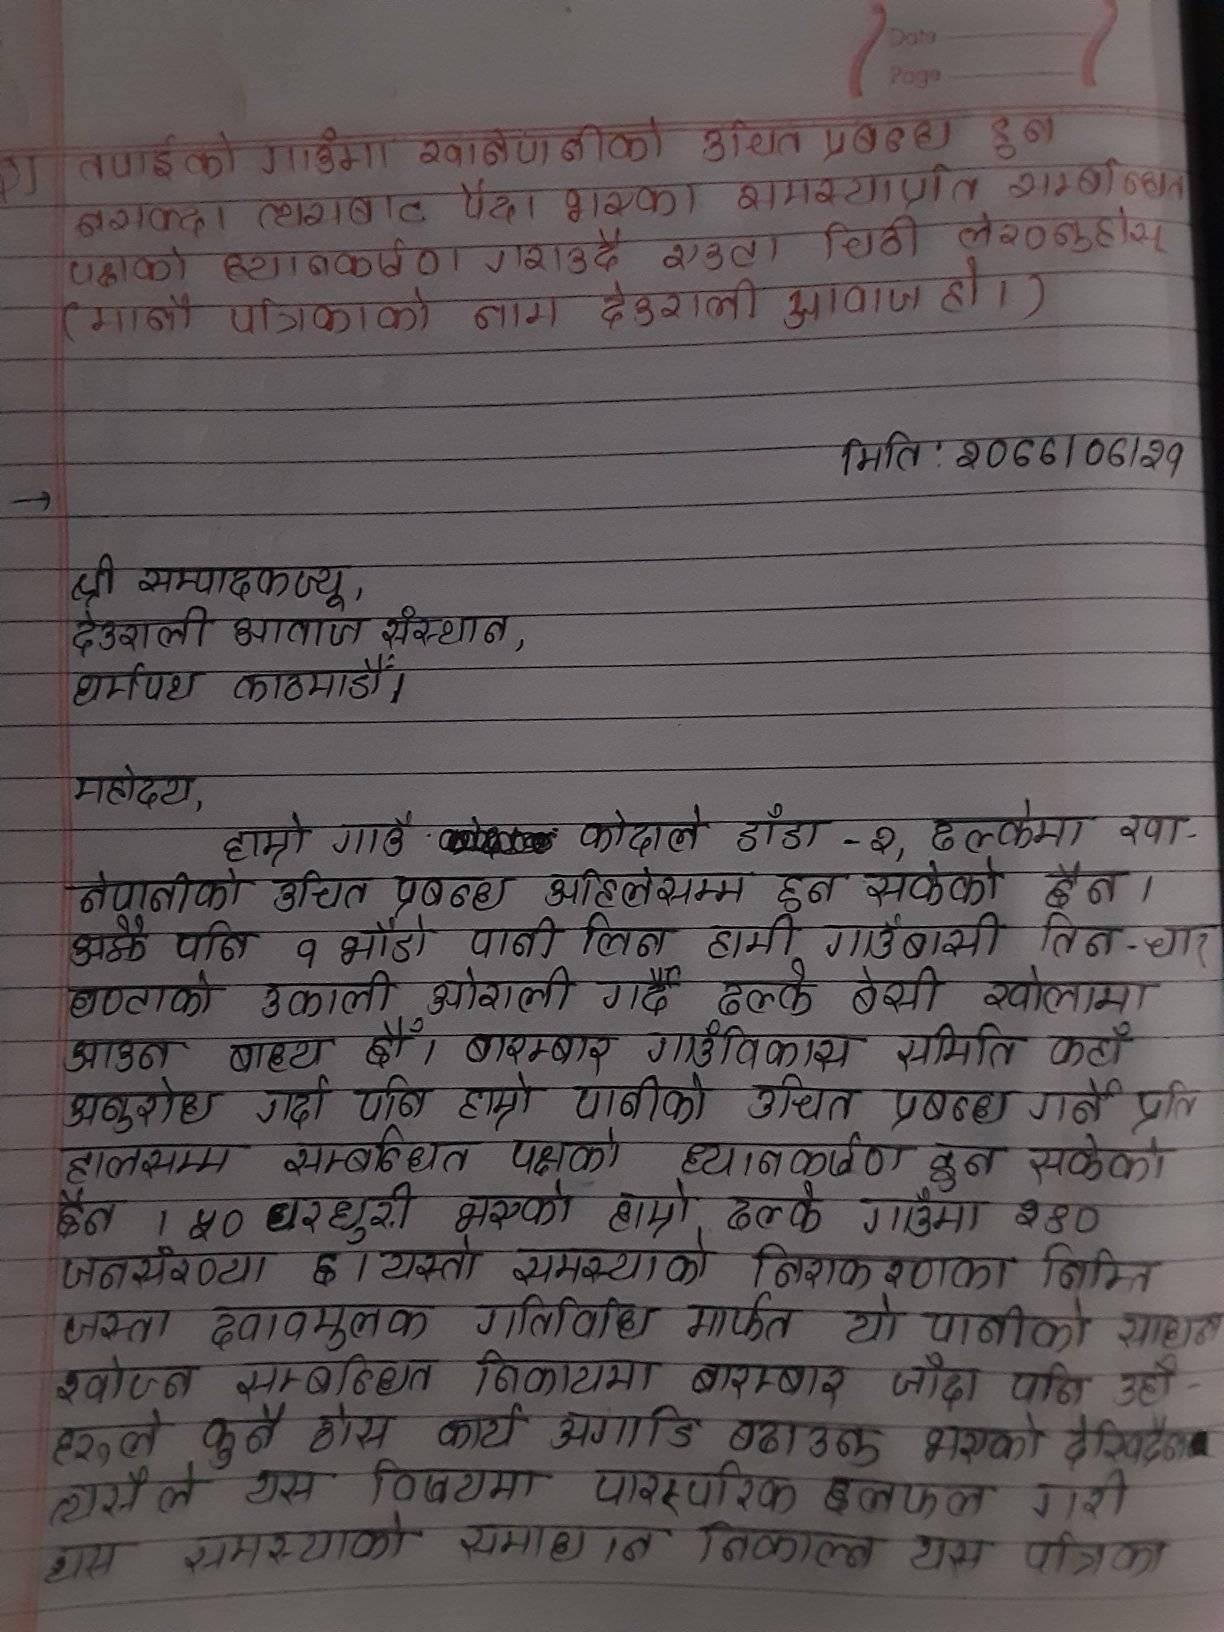 Date
Page
तपाईको गाउँमा खानेपानीको उचित प्रबन्ध हुन
नसक्दा त्यसबाट पैदा भएका समस्याप्रति सम्बन्धित
पक्षको ध्यानकर्षण गराउदै एउटा चिठी लेख्नुहोस्
(मानौ पत्रिकाको नाम देउराली आवाज हो।)
मिति: २०७७।०७।२१
→
श्री सम्पादकज्यू,
देउराली आवाज संस्थान,
धर्मपथ काठमाडौँ।
महोदय,
हाम्रो गाउँ कोदाले डाँडा -२, ढल्केमा खा-
नेपानीको उचित प्रबन्ध अहिलेसम्म हुन सकेको छैन।
अझै पनि १ भाँडो पानी लिन हामी गाउँबासी तिन-चार
घण्टाको उकाली ओराली गर्दै ढल्के बेसी खोलामा
आउन बाध्य छौँ। बारम्बार गाउँविकास समिति कहाँ
अनुरोध गर्दा पनि हाम्रो पानीको उचित प्रबन्ध गर्ने प्रति
हालसम्म सम्बन्धित पक्षको ध्यानकर्षण हुन सकेको
छैन। ५० घरधुरी भएको हाम्रो ढल्के गाउँमा २४०
जनसंख्या छ। यस्तो समस्याको निराकरणका निम्ति
जस्ता दवावमुलक गतिविधि मार्फत यो पानीको साधन
खोज्न सम्बन्धित निकायमा बारम्बार जाँदा पनि उहाँ-
हरुले कुनै ठोस कार्य अगाडि बढाउनु भएको देखिदैन
त्यसैले यस विषयमा पारस्परिक छलफल गरी
यस समस्याको समाधान निकाल्न यस पत्रिका